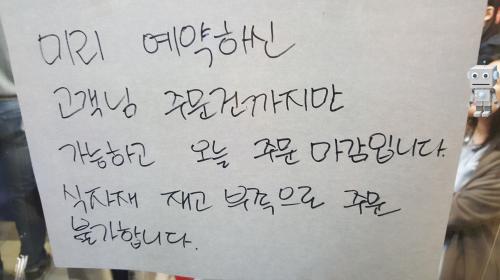 미리 예약해신
고객님 주문건까지만
가능하고 오늘 주문 마감입니다.
식자재 재고 부족으로 주문
불가합니다.